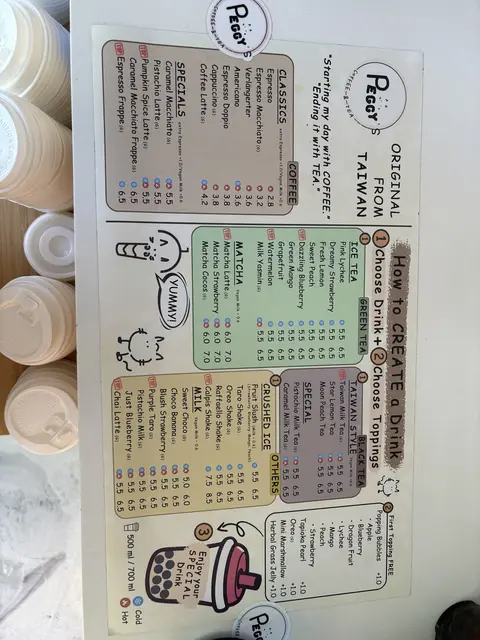 PEGGY'S
COFFEE-&-TEA
ORIGINAL
FROM
TAIWAN
"Starting my day with COFFEE,"
"Ending it with TEA."
COFFEE
CLASSICS extra Espresso +1.0/Vegan Milk +0.6
Espresso 2.8
Espresso Macchiato 3.2
Verlängerter 3.6
Americano 3.6
Espresso Doppio 3.8
Cappuccino 3.8
Coffee Latte 4.2
SPECIALS extra Espresso +1.0/Vegan Milk +0.6
Caramel Macchiato 5.5
Pistachio Latte 5.5
TOP Pumpkin Spice Latte 5.5
Caramel Macchiato Frappe 6.5
TOP Espresso Frappe 6.5
How to CREATE a Drink
1 Choose Drink + 2 Choose Toppings
1 GREEN TEA
ICE TEA
Pink Lychee 5.5 6.5
Dreamy Strawberry 5.5 6.5
Fresh Lemon 5.5 6.5
Sweet Peach 5.5 6.5
TOP Dazzling Blueberry 5.5 6.5
Green Mango 5.5 6.5
Grapefruit 5.5 6.5
TOP Watermelon 5.5 6.5
Milk Yasmin 5.5 6.5
MATCHA Vegan Milk +0.6
TOP Matcha Latte 6.0 7.0
Matcha Strawberry 6.0 7.0
Matcha Cocos 6.0 7.0
YUMMY!
1 BLACK TEA
TAIWAN STYLE
TOP Taiwan Milk Tea 5.5 6.5
Star Lemon Tea 5.5 6.5
Moon Peach Tea 5.5 6.5
SPECIAL
Pistachio Milk Tea 5.5 6.5
TOP Caramel Milk Tea 5.5 6.5
1 OTHERS
CRUSHED ICE
Fruit Slush 5.5 6.5
Taro Shake 5.5 6.5
Oreo Shake 5.5 6.5
Raffaello Shake 5.5 6.5
TOP Shake 7.5 8.5
MILK
Sweet Choco 5.0 6.0
Choco Banana 5.5 6.5
Blush Strawberry 5.5 6.5
TOP Purple Taro 5.5 6.5
Pistachio Milk 5.5 6.5
Just Blueberry 5.5 6.5
TOP Chai Latte 5.5 6.5
2 First Topping FREE
Popping Bubbles +1.0
· Apple
· Blueberry
· Dragon Fruit
· Lychee
· Mango
· Peach
· Strawberry
Tapioka Pearl +1.0
Oreo +1.0
Mini Marshmallow +1.0
Herbal Grass Jelly +1.0
3 Enjoy your
SPECIAL
Drink
500 ml / 700 ml
Cold
Hot
PEGGY'S
COFFEE-&-TEA
PEGGY'S